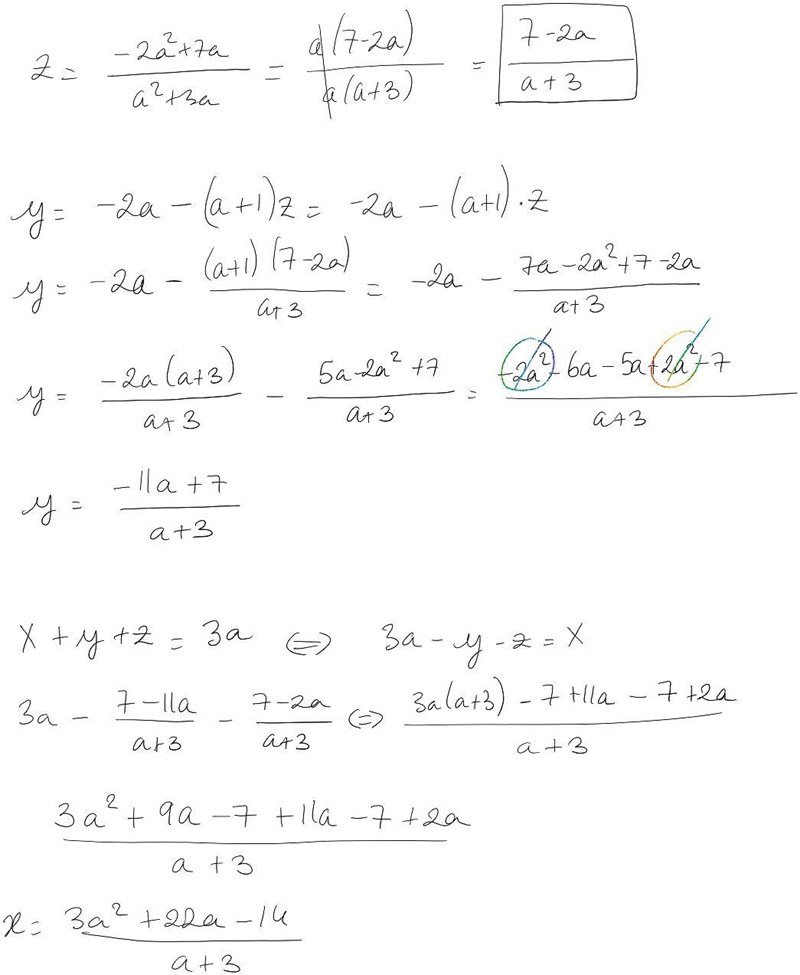 z = (-2a²+7a)/(a²+3a) = a(7-2a)/a(a+3) = (7-2a)/(a+3)
y = -2a - (a+1)z = -2a - (a+1)·z
y = -2a - (a+1)(7-2a)/(a+3) = -2a - (7a-2a²+7-2a)/(a+3)
y = -2a(a+3)/(a+3) - (5a-2a²+7)/(a+3) = (-2a²-6a-5a+2a²-7)/(a+3)
y = (-11a+7)/(a+3)
x+y+z = 3a ⇔ 3a-y-z = x
3a - (7-11a)/(a+3) - (7-2a)/(a+3) ⇔ (3a(a+3)-7+11a-7+2a)/(a+3)
(3a²+9a-7+11a-7+2a)/(a+3)
x = (3a²+22a-14)/(a+3)